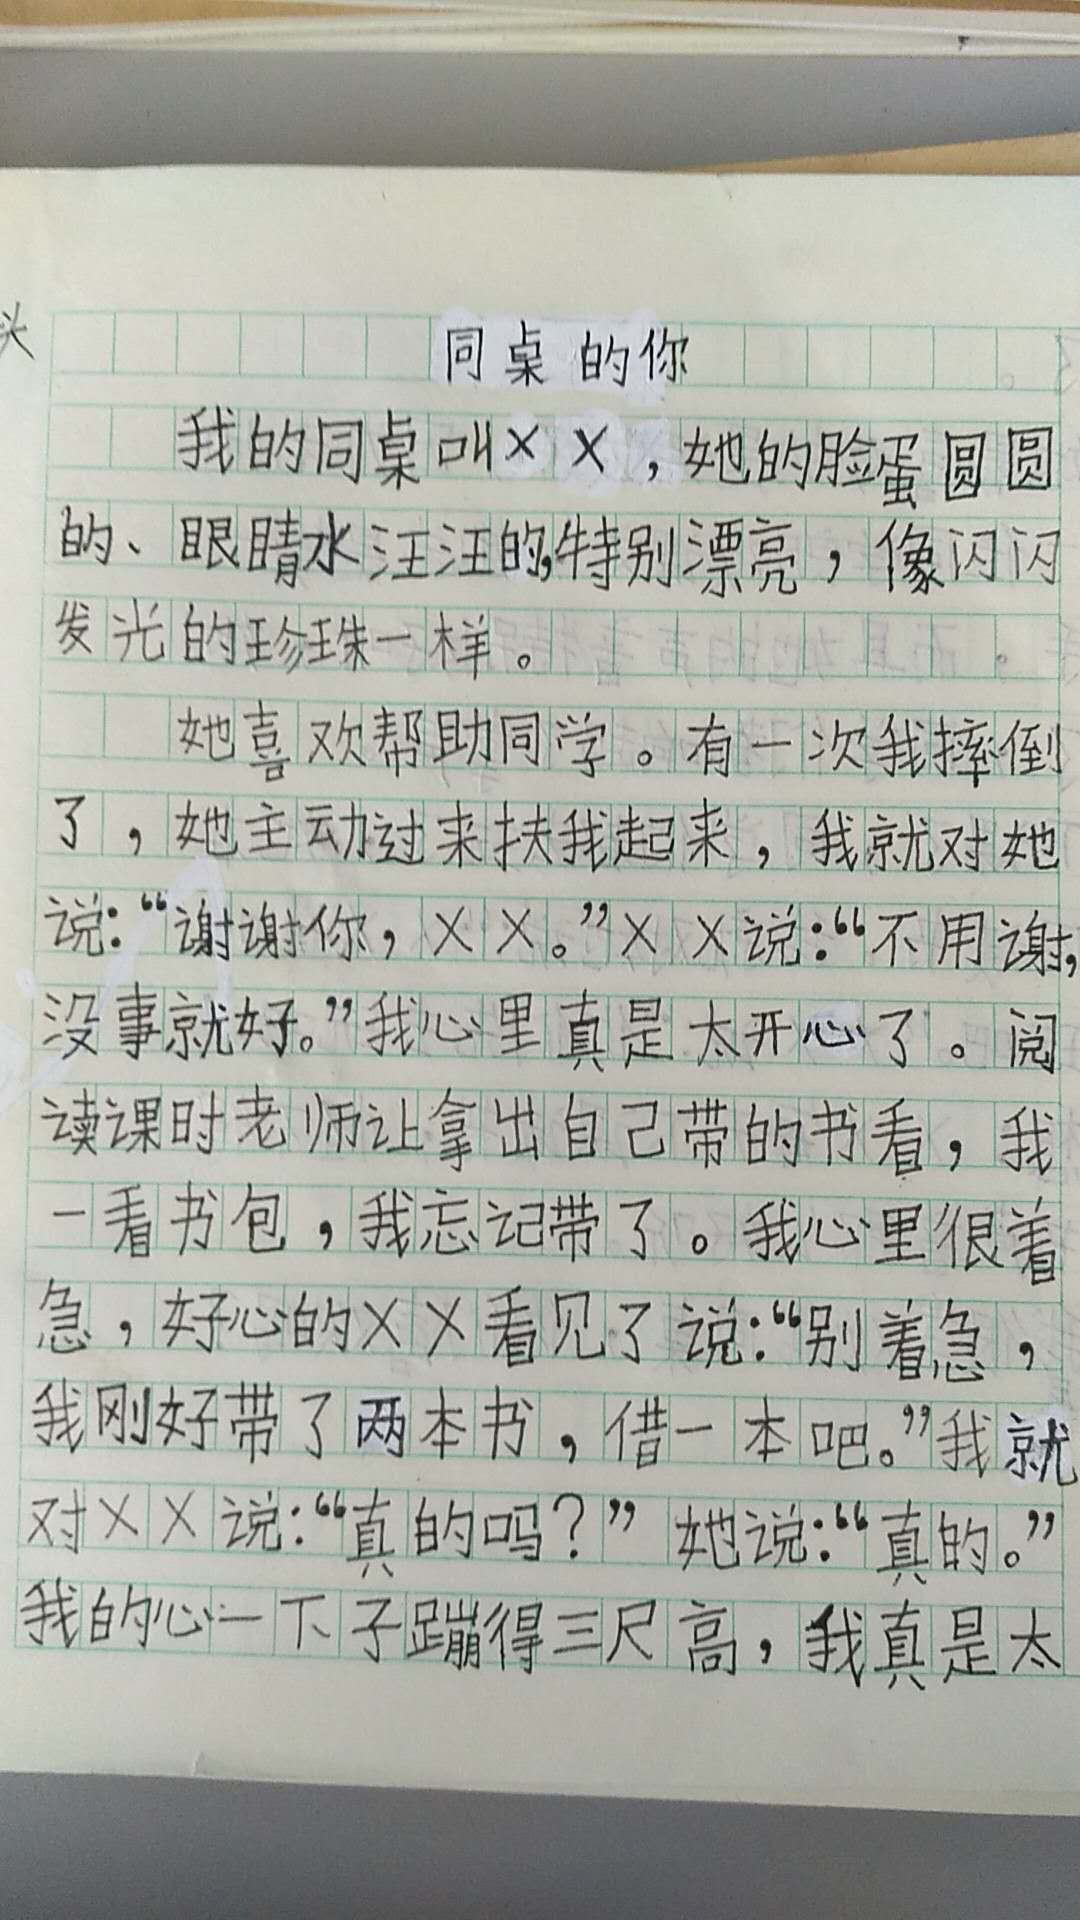 头
同桌的你
我的同桌叫××，她的脸蛋圆圆
的、眼睛水汪汪的,特别漂亮，像闪闪
发光的珍珠一样。
她喜欢帮助同学。有一次我摔倒
了，她主动过来扶我起来，我就对她
说：“谢谢你，××。”××说：“不用谢，
没事就好。”我心里真是太开心了。阅
读课时老师让拿出自己带的书看，我
一看书包，我忘记带了。我心里很着
急，好心的××看见了说：“别着急，
我刚好带了两本书，借一本吧。”我就
对××说：“真的吗？”她说：“真的。”
我的心一下子蹦得三尺高，我真是太